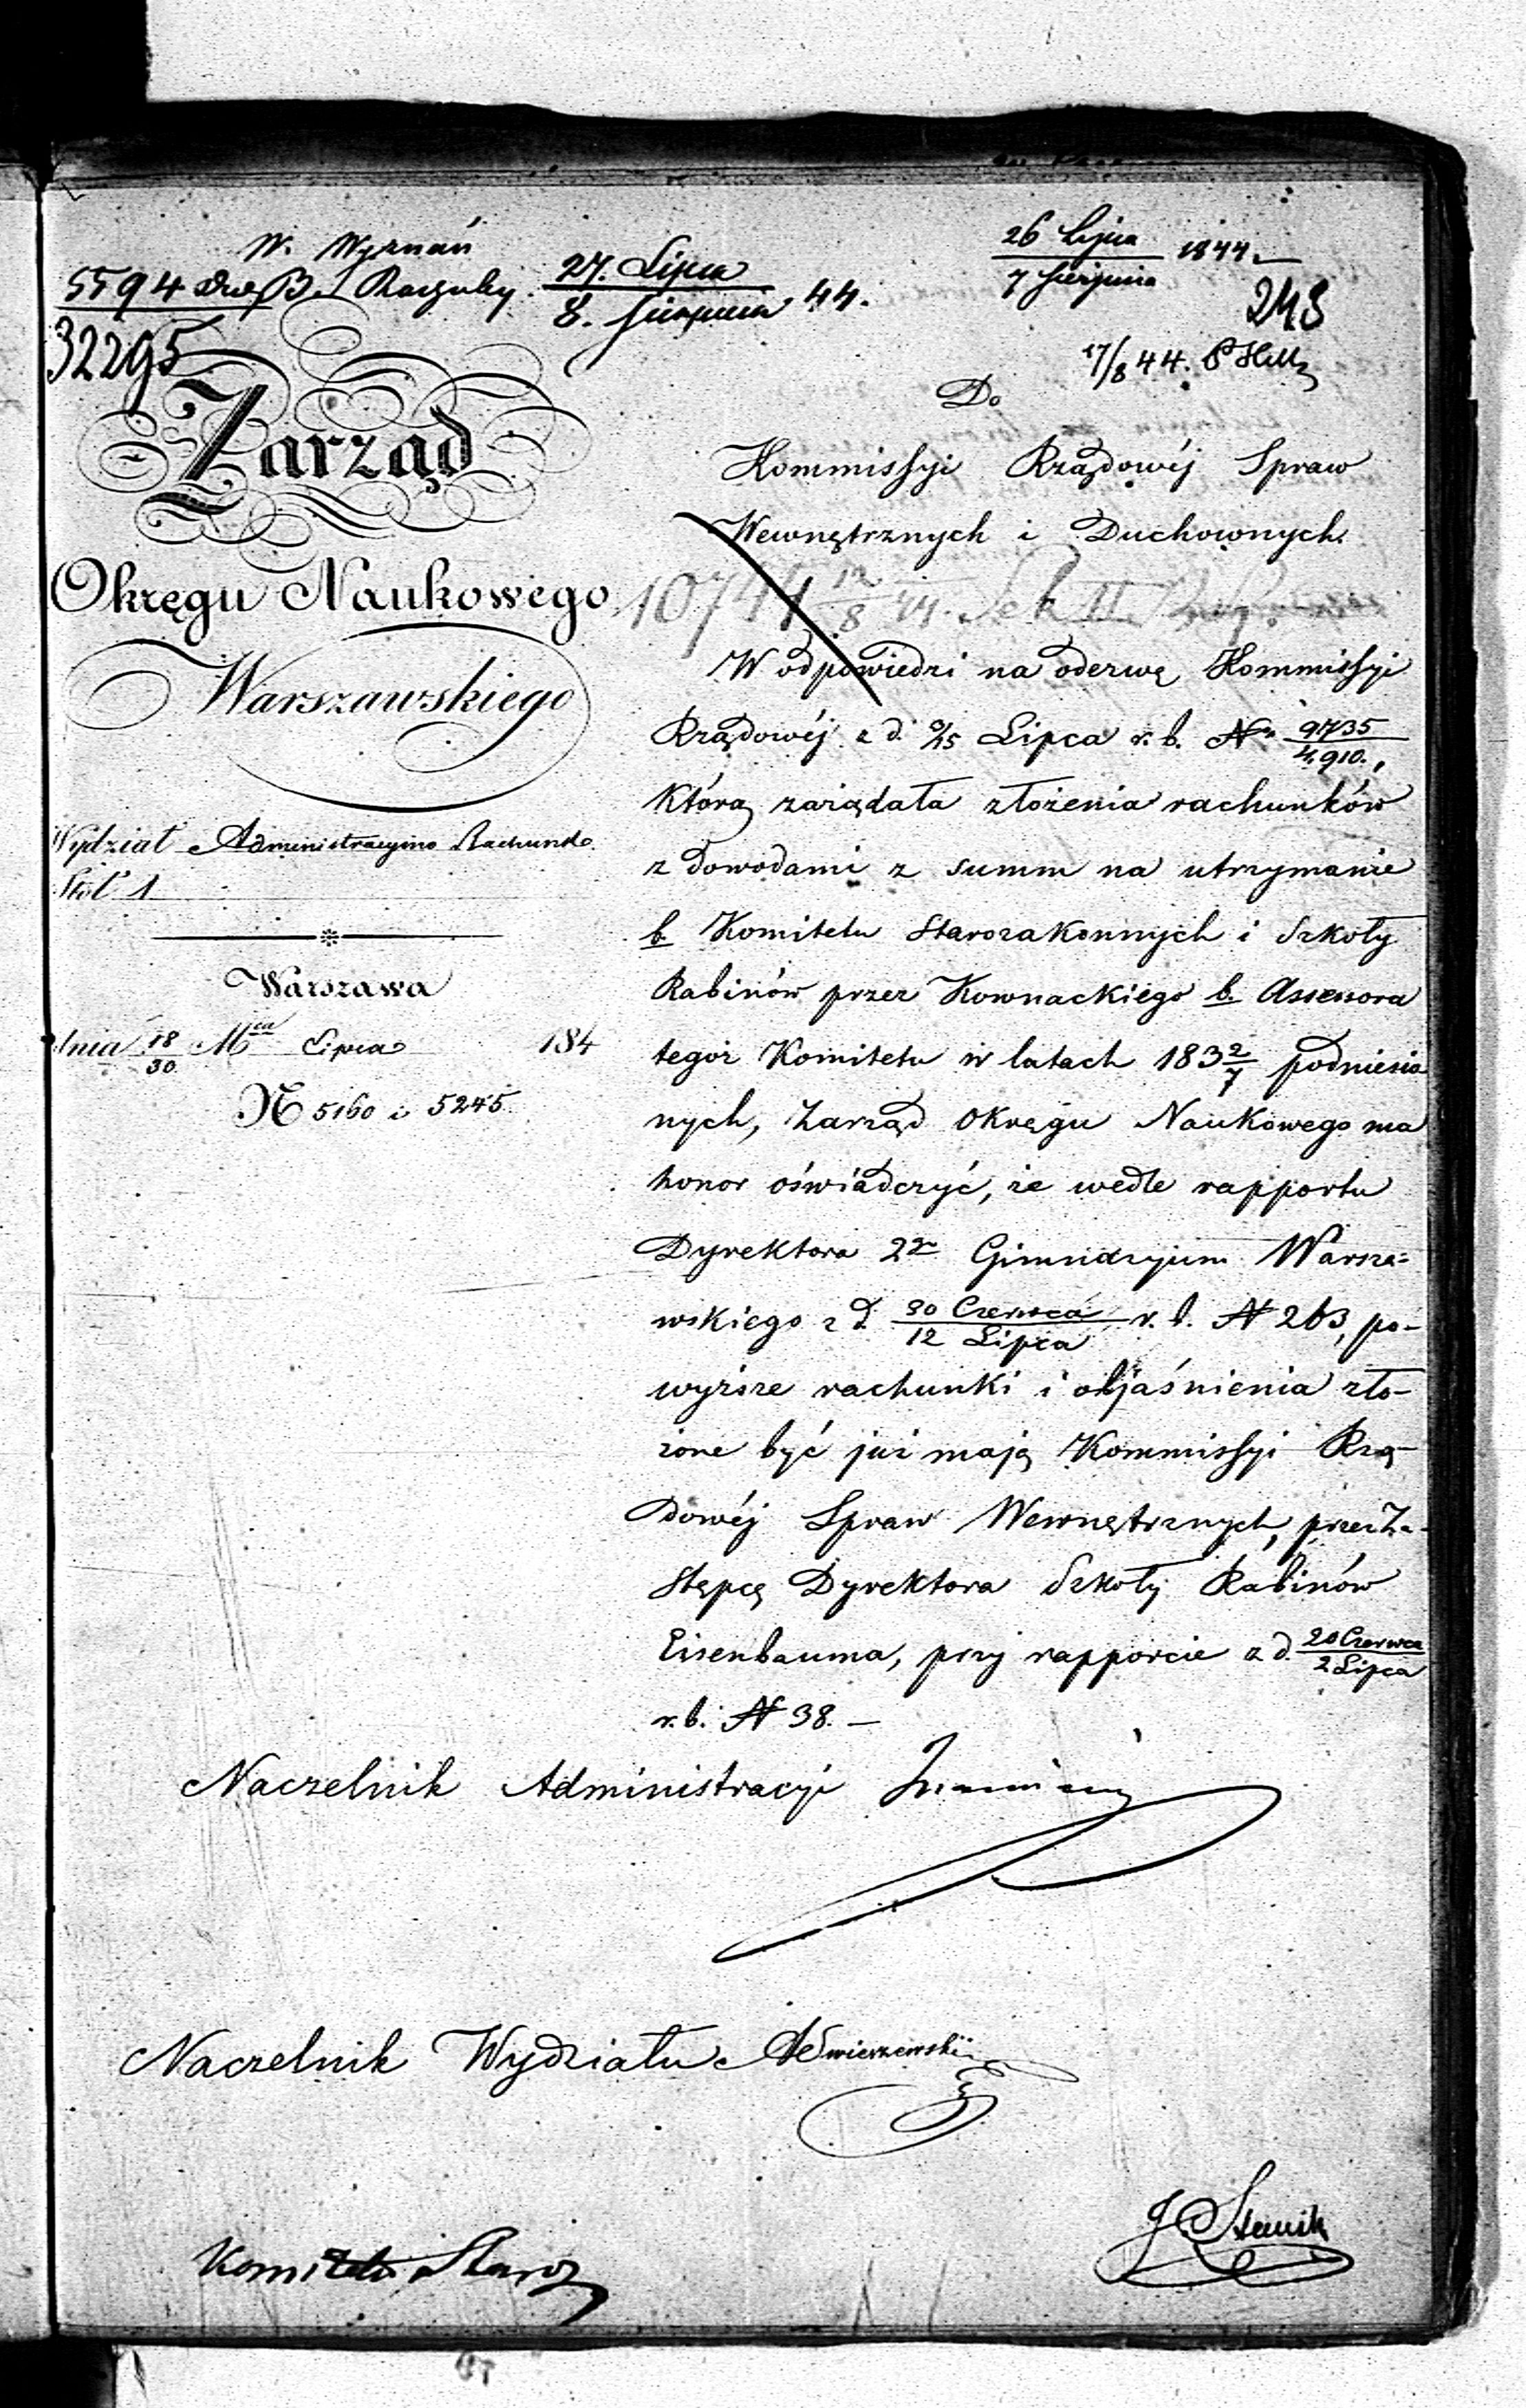 W. Wyznań
26 Lipca / 7 Sierpnia 1844.
5594 B. Rachuby. 27. Lipca / 8. Sierpnia 44.
248
32295
17/8 44.
Zarząd
Okręgu Naukowego
Warszawskiego
Wydział Administracyino Rachunko.
Stół 1
Warszawa
dnia 18/30 Mca Lipca 184
N 5160 i 5245.
Do
Kommissyi Rządowéj Spraw
Wewnętrznych i Duchownych.
10744 12/8 44. Sek II
W odpowiedzi na odezwę Kommissyi
Rządowéj z d. 3/15 Lipca r. b. No 9735/4,910.,
którą zażądała złożenia rachunków
z dowodami z summ na utrzymanie
b. Komitetu Starozakonnych i Szkoły
Rabinów przez Kownackiego b. Assessora
tegoż Komitetu w latach 183 2/7 podniesio
nych, Zarząd Okręgu Naukowego ma
honor oświadczyć, że wedle rapportu
Dyrektora 2go Gimnazyum Warsza-
wskiego z d. 30 Czerwca / 12 Lipca r. b. N 263, po-
wyższe rachunki i objaśnienia zło-
żone być już mają Kommissyi Rzą-
dowéj Spraw Wewnętrznych, przez Za-
stępcę Dyrektora Szkoły Rabinów
Eisenbauma, przy rapporcie z d. 20 Czerwca / 2 Lipca
r. b. N 38. —
Naczelnik Administracyi
Naczelnik Wydziału
Komitetu Staroz